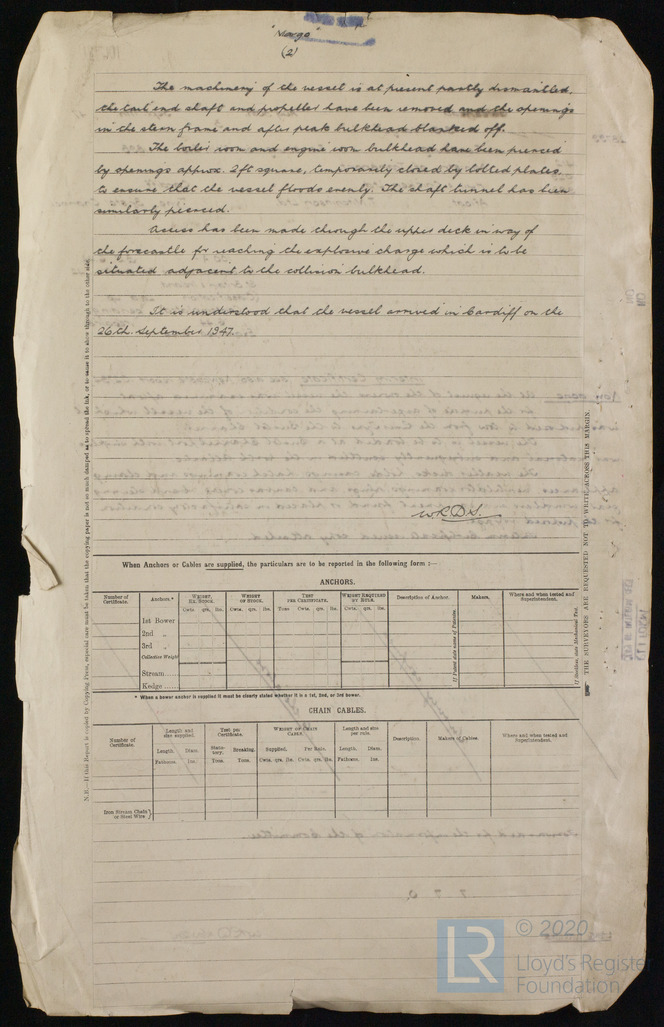 "Marga"
(2)
The machinery of the vessel is at present partly dismantled,
the tail end shaft and propeller have been removed and the openings
in the stern frame and after peak bulkhead blanked off.
The boiler room and engine room bulkhead have been pierced
by openings approx. 2ft square, temporarily closed by bolted plates
to ensure that the vessel floods evenly. The shaft tunnel has been
similarly pierced.
Access has been made through the upper deck in way of
the forecastle for reaching the explosive charge which is to be
situated adjacent to the collision bulkhead.
It is understood that the vessel arrived in Cardiff on the
26th September 1947.
W.R.D.S.
When Anchors or Cables are supplied, the particulars are to be reported in the following form :—
ANCHORS.
Number of Certificate. Anchors.* Weight, Ex. Stock. Weight of Stock. Test per Certificate. Weight Required by Rule. Description of Anchor. Makers. Where and when tested and Superintendent.
Cwts. qrs. lbs. Cwts. qrs. lbs. Tons Cwts. qrs. lbs. Cwts. qrs. lbs.
1st Bower
2nd „
3rd „
Collective Weight
Stream
Kedge
If Patent state name of Patentee.
* When a bower anchor is supplied it must be clearly stated whether it is a 1st, 2nd, or 3rd bower.
CHAIN CABLES.
Number of Certificate. Length and size supplied. Test per Certificate. Weight of Chain Cable. Length and size per rule. Description. Makers of Cables. Where and when tested and Superintendent.
Length. Diam. Statutory. Breaking. Supplied. Per Rule. Length. Diam.
Fathoms. Ins. Tons. Tons. Cwts. qrs. lbs. Cwts. qrs. lbs. Fathoms. Ins.
Iron Stream Chain
or Steel Wire
N.B.—If this Report is copied by Copying Press, especial care must be taken that the copying paper is not so much damped as to spread the ink, or to cause it to show through to the other side.
THE SURVEYORS ARE REQUESTED NOT TO WRITE ACROSS THIS MARGIN.
LR
© 2020
Lloyd's Register
Foundation